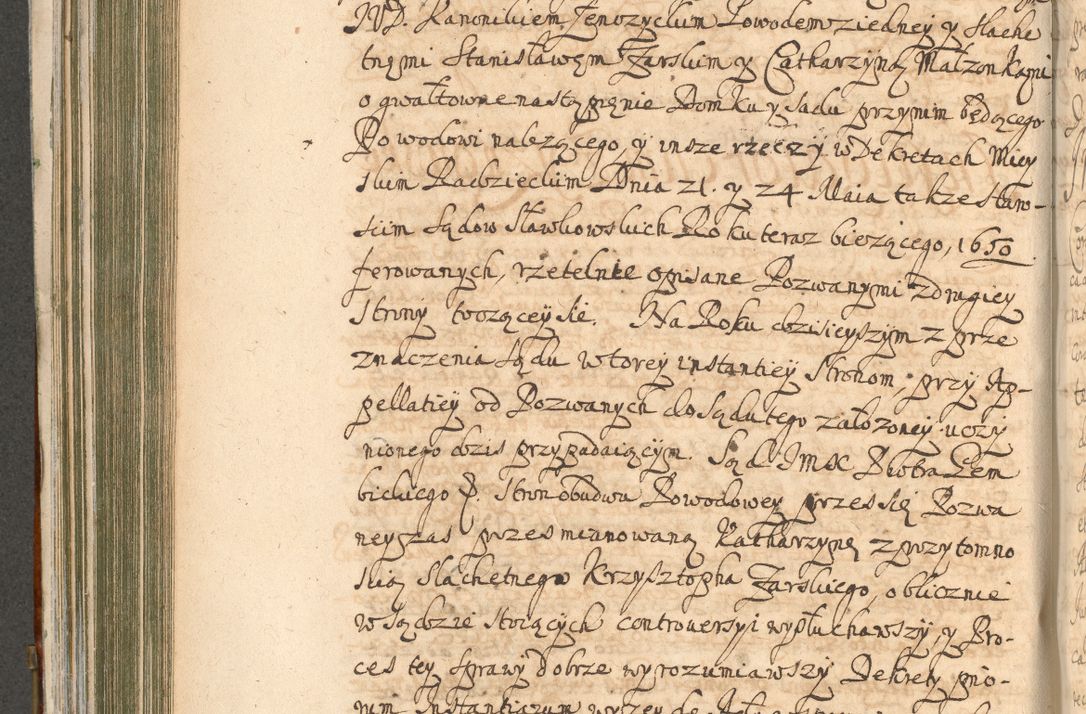 JVD. Kanonikiem Jenozyckim Powodem z iedney y Slache
tnymi Stanisławem Żarskim y Catharzyną Małzonkami
o gwałtowne nastąpięnie Domku y Sadu przynim będącego
Powodowi nalezącego, y insze rzeczy w Dekretach Miey
skim Radzieckim Dnia 21. y 24 Maia takze staro-
sciim Sądow Sławkowskich Roku teraz biezącego, 1650
ferowanych, rzetelnie opisane Pozwanymi z drugiey
Strony toczącey sie. Na Roku dzisieyszym z prze
znaczenia Sądu wtorey instantiey Stronom, przy Ap-
pellatiey od Pozwanych do Sądu tego założoney uczy
nionego dzis przypadaiącym. Sąd JMsc Piotra Gem
bickiego P. Stron obudwu Powodowey przes się Pozwa
ney zas przes mianowaną Katharzynę z przytomno
scią Slachetnego Krzysztopha Żarskiego, oblicznie
w Sądzie Stoiących controuersyi wysłuchawszy y Pro-
ces tey Sprawy dobrze wyrozumiawszy Dekrety pię-